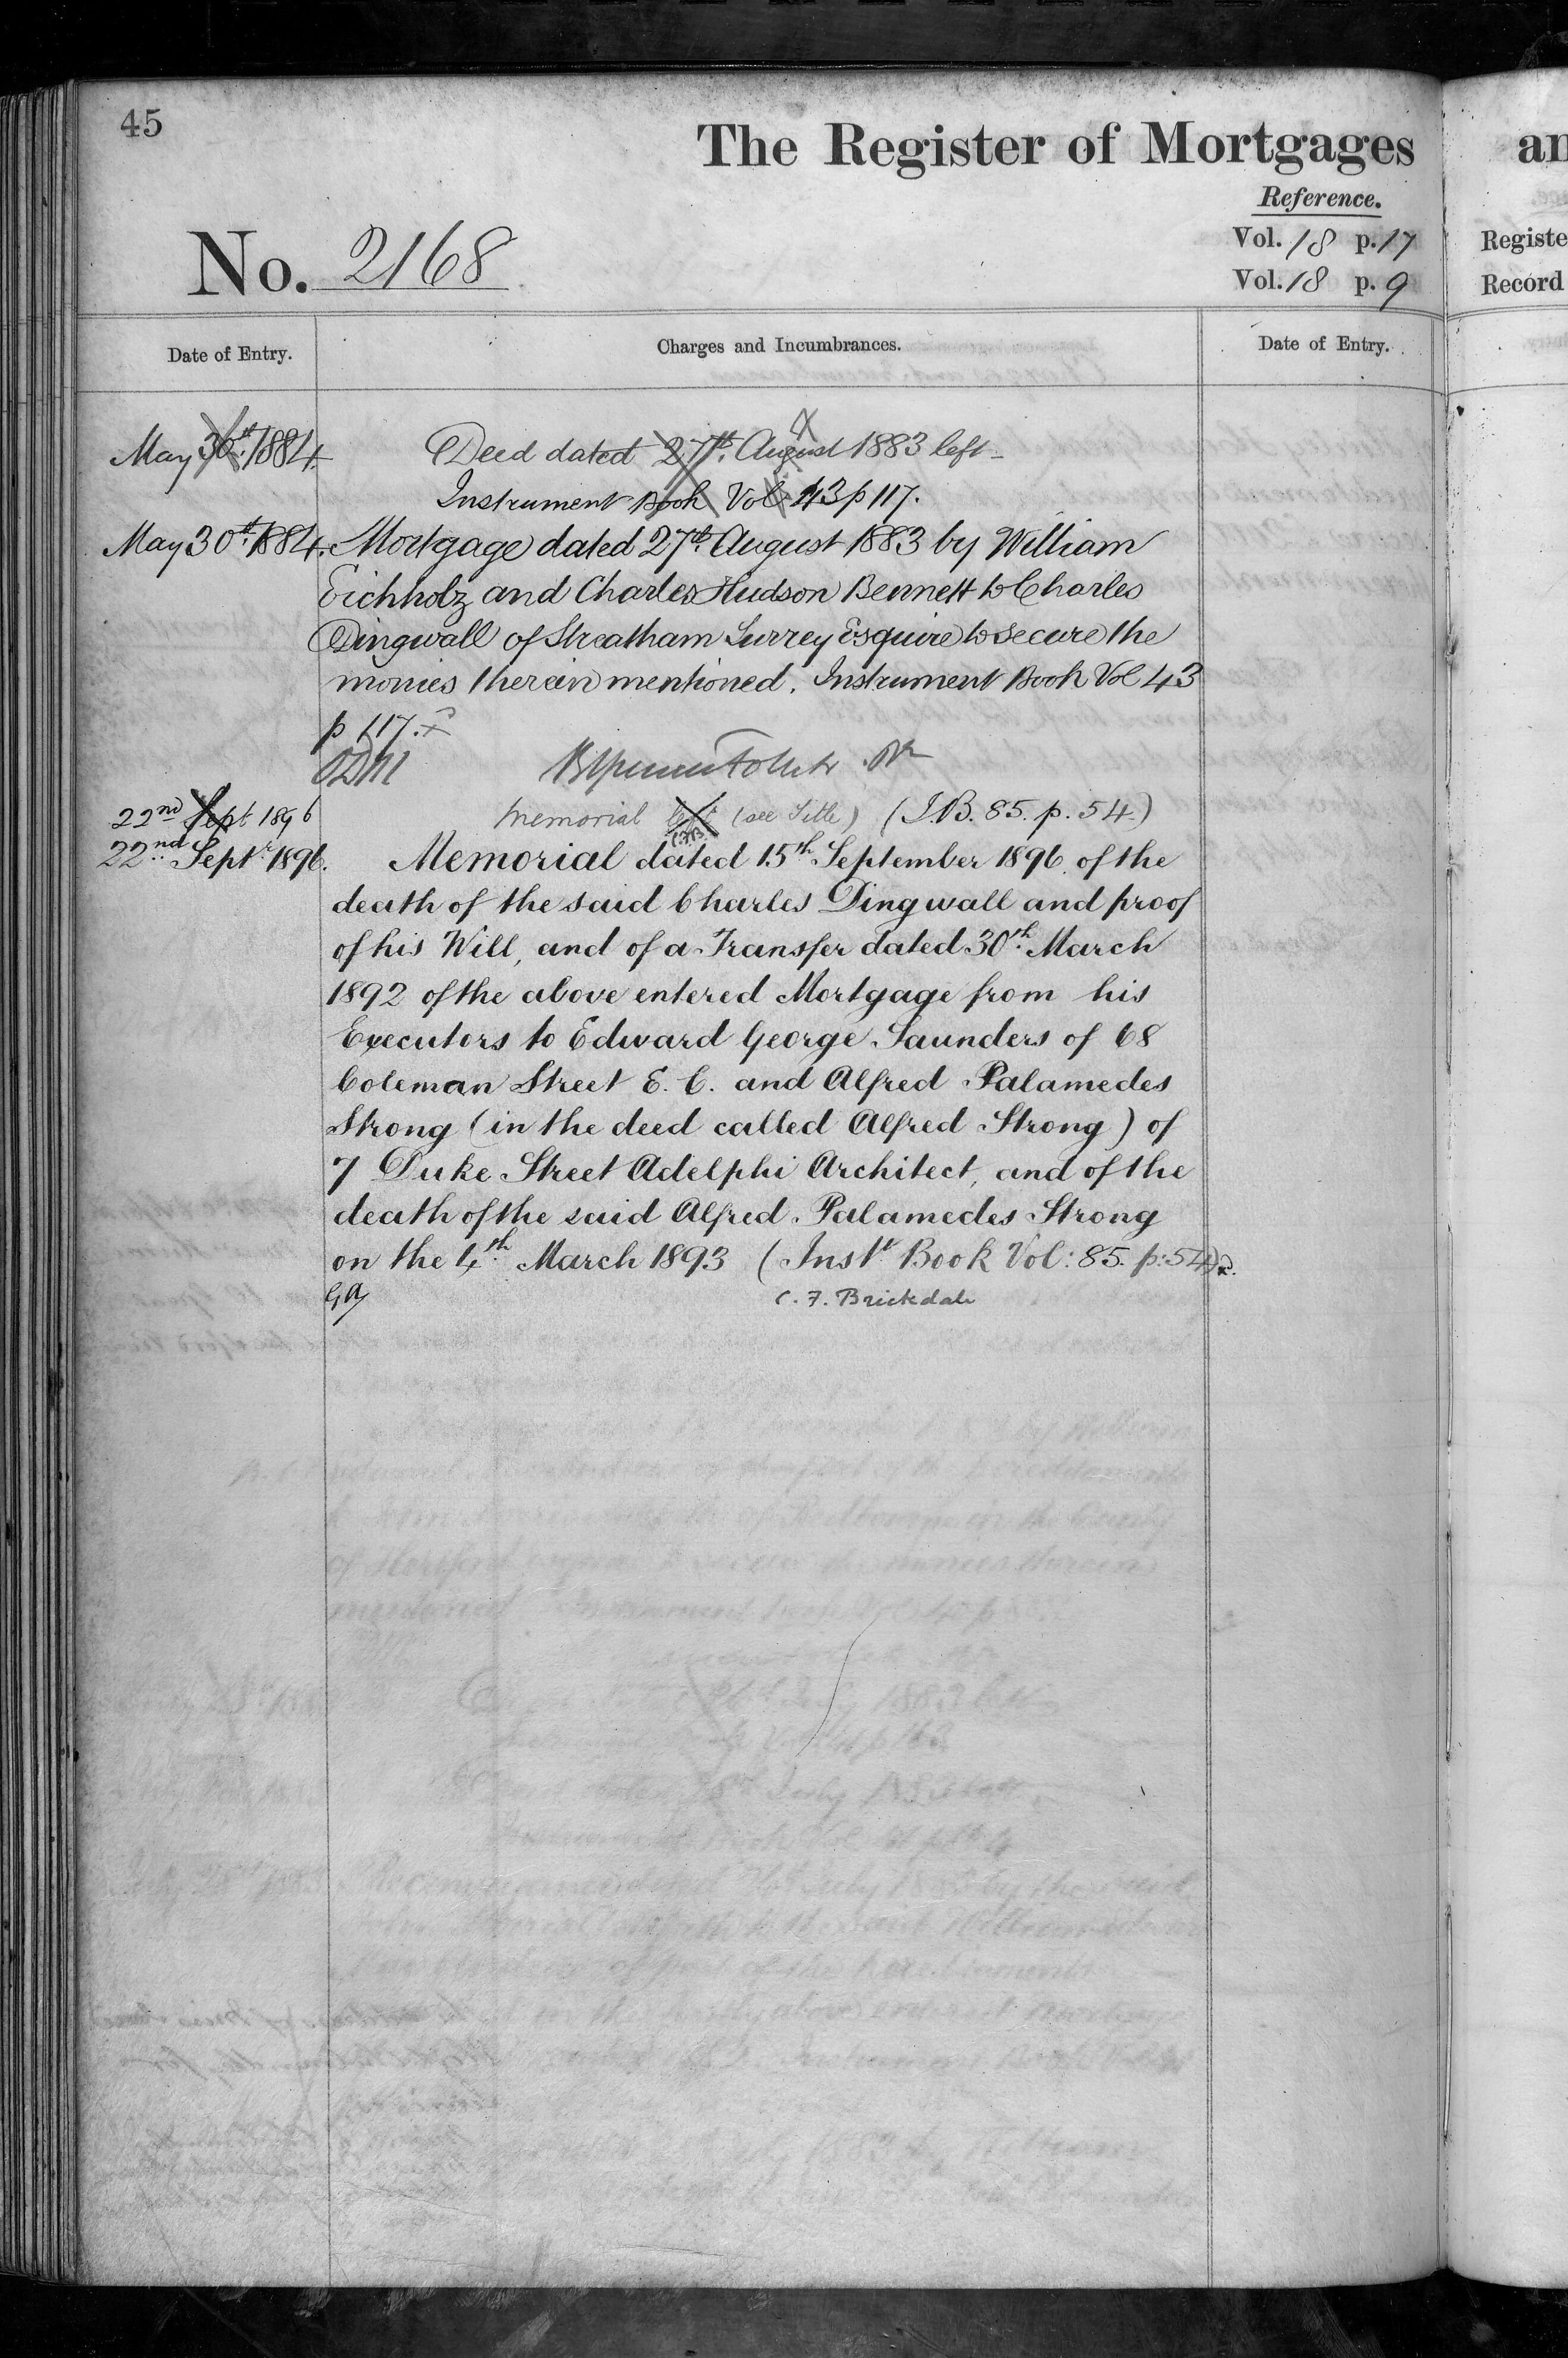 45
The Register of Mortgages
an
Reference.
No. 2168
Vol. 18 p. 17
Registe
Vol. 18 p. 9
Record
Date of Entry.
Charges and Incumbrances.
Date of Entry.
May 30th. 1884.
Deed dated 27th. August 1883 left
Instrument Book Vol. 43 p 117.
May 30th. 1884.
Mortgage dated 27th. August 1883 by William
Eichholz and Charles Hudson Bennett to Charles
Dingwall of Streatham Surrey Esquire to secure the
monies therein mentioned. Instrument Book Vol 43
p 117.
22nd Sept 1896
Memorial left (see Title) (I.B. 85. p. 54.)
22nd. Septr. 1896.
Memorial dated 15th. September 1896 of the
death of the said Charles Dingwall and proof
of his Will, and of a Transfer dated 30th. March
1892 of the above entered Mortgage from his
Executors to Edward George Saunders of 68
Coleman Street E. C. and Alfred Palamedes
Strong (in the deed called Alfred Strong) of
7 Duke Street Adelphi Architect, and of the
death of the said Alfred Palamedes Strong
on the 4th. March 1893 (Inst. Book Vol: 85. p: 54)
C. F. Brickdale